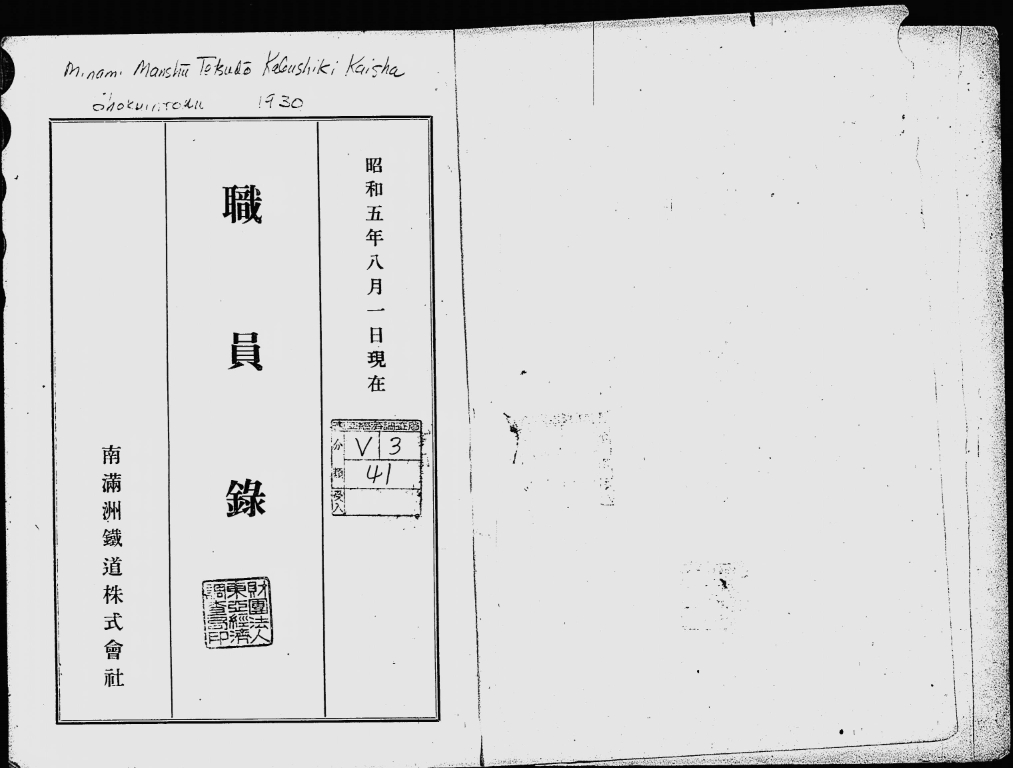 Minami Manshū Tetsudō Kabushiki Kaisha
Shokuinroku 1930
昭和五年八月一日現在
職員錄
南滿洲鐵道株式會社
分類
V 3
41
受入
財團法人
東亞經濟
調查局印